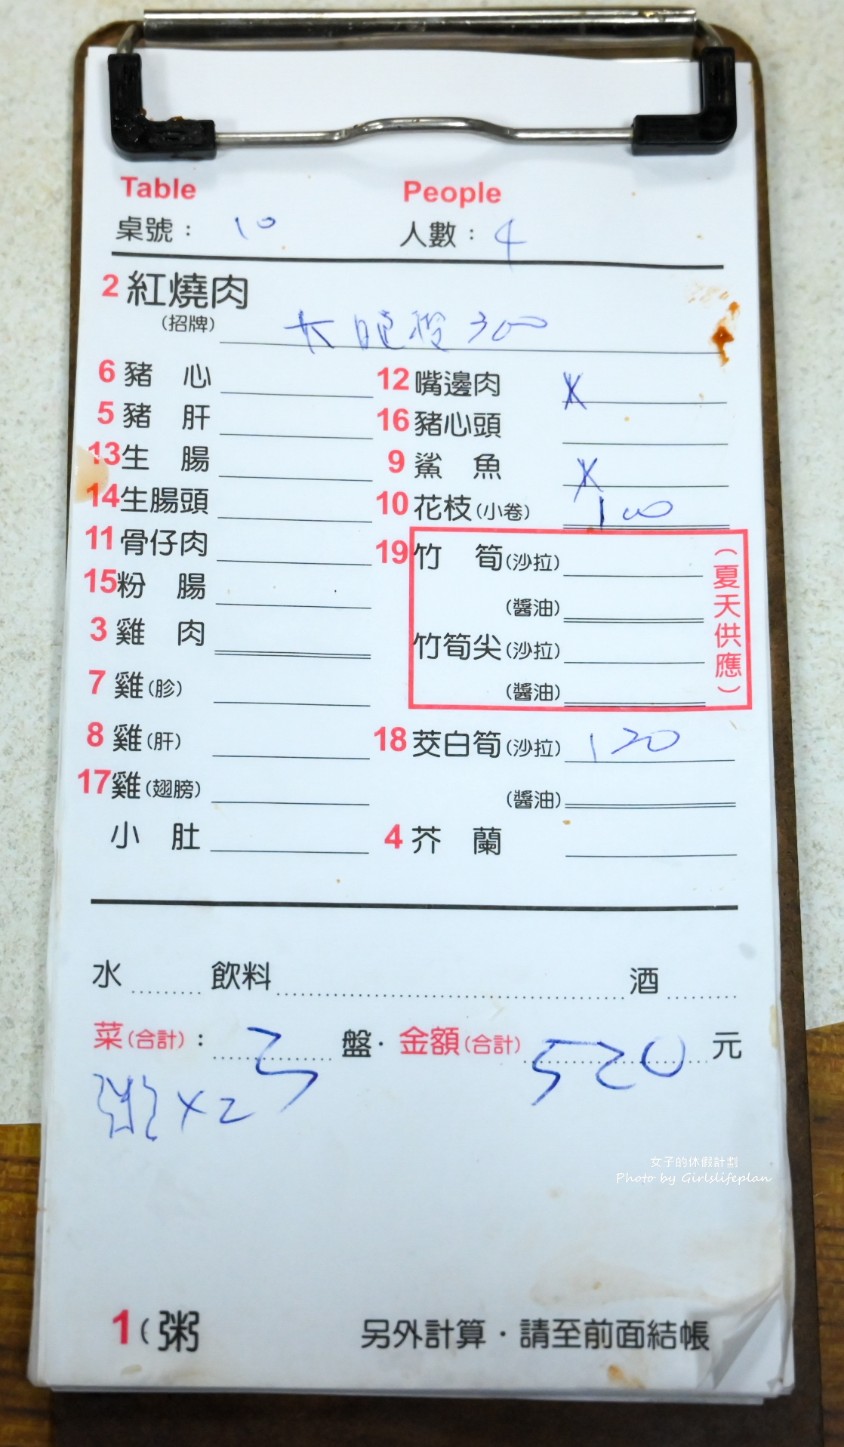 Table People
桌號： 10 人數： 4
2 紅燒肉
(招牌) 大 300
6 豬 心 12 嘴邊肉 X
5 豬 肝 16 豬心頭
13 生 腸 9 鯊 魚 X
14 生腸頭 10 花枝(小卷) 100
11 骨仔肉 19 竹 筍(沙拉)
15 粉 腸 (醬油)
3 雞 肉 竹筍尖(沙拉)
7 雞(胗) (醬油)
(夏天供應)
8 雞(肝) 18 茭白筍(沙拉) 120
17 雞(翅膀) (醬油)
小 肚 4 芥 蘭
水 飲料 酒
菜(合計)： 3 盤·金額(合計) 520 元
粥x2
女子的休假計劃
Photo by Girlslifeplan
1 (粥 另外計算·請至前面結帳